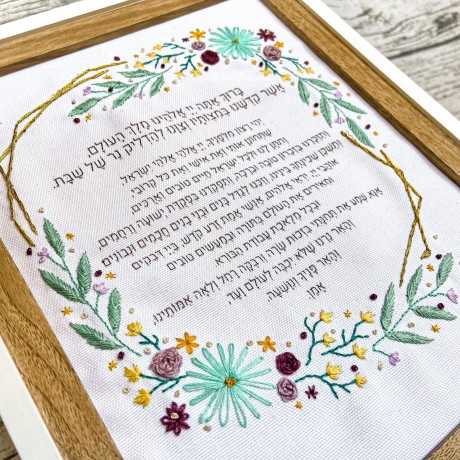 ברוך אתה יי אלהינו מלך העולם,
אשר קדשנו במצותיו וצונו להדליק נר של שבת.
יהי רצון מלפניך, יי אלהי ואלהי ישראל,
שתחונן אותי ואת אישי ואת כל קרובי,
ותתן לנו ולכל ישראל חיים טובים וארכים,
ותזכרנו בזכרון טובה וברכה, ותפקדנו בפקדת ישועה ורחמים,
ותשכן שכינתך בינינו, וזכנו לגדל בנים ובני בנים חכמים ונבונים
אוהבי יי, יראי אלהים, אנשי אמת זרע קדש, ביי דבקים
ומאירים את העולם בתורה ובמעשים טובים
ובכל מלאכת עבודת הבורא
אנא שמע את תחנתי בזכות שרה ורבקה רחל ולאה אמותינו,
והאר נרנו שלא יכבה לעולם ועד,
והאר פניך ונושעה.
אמן.